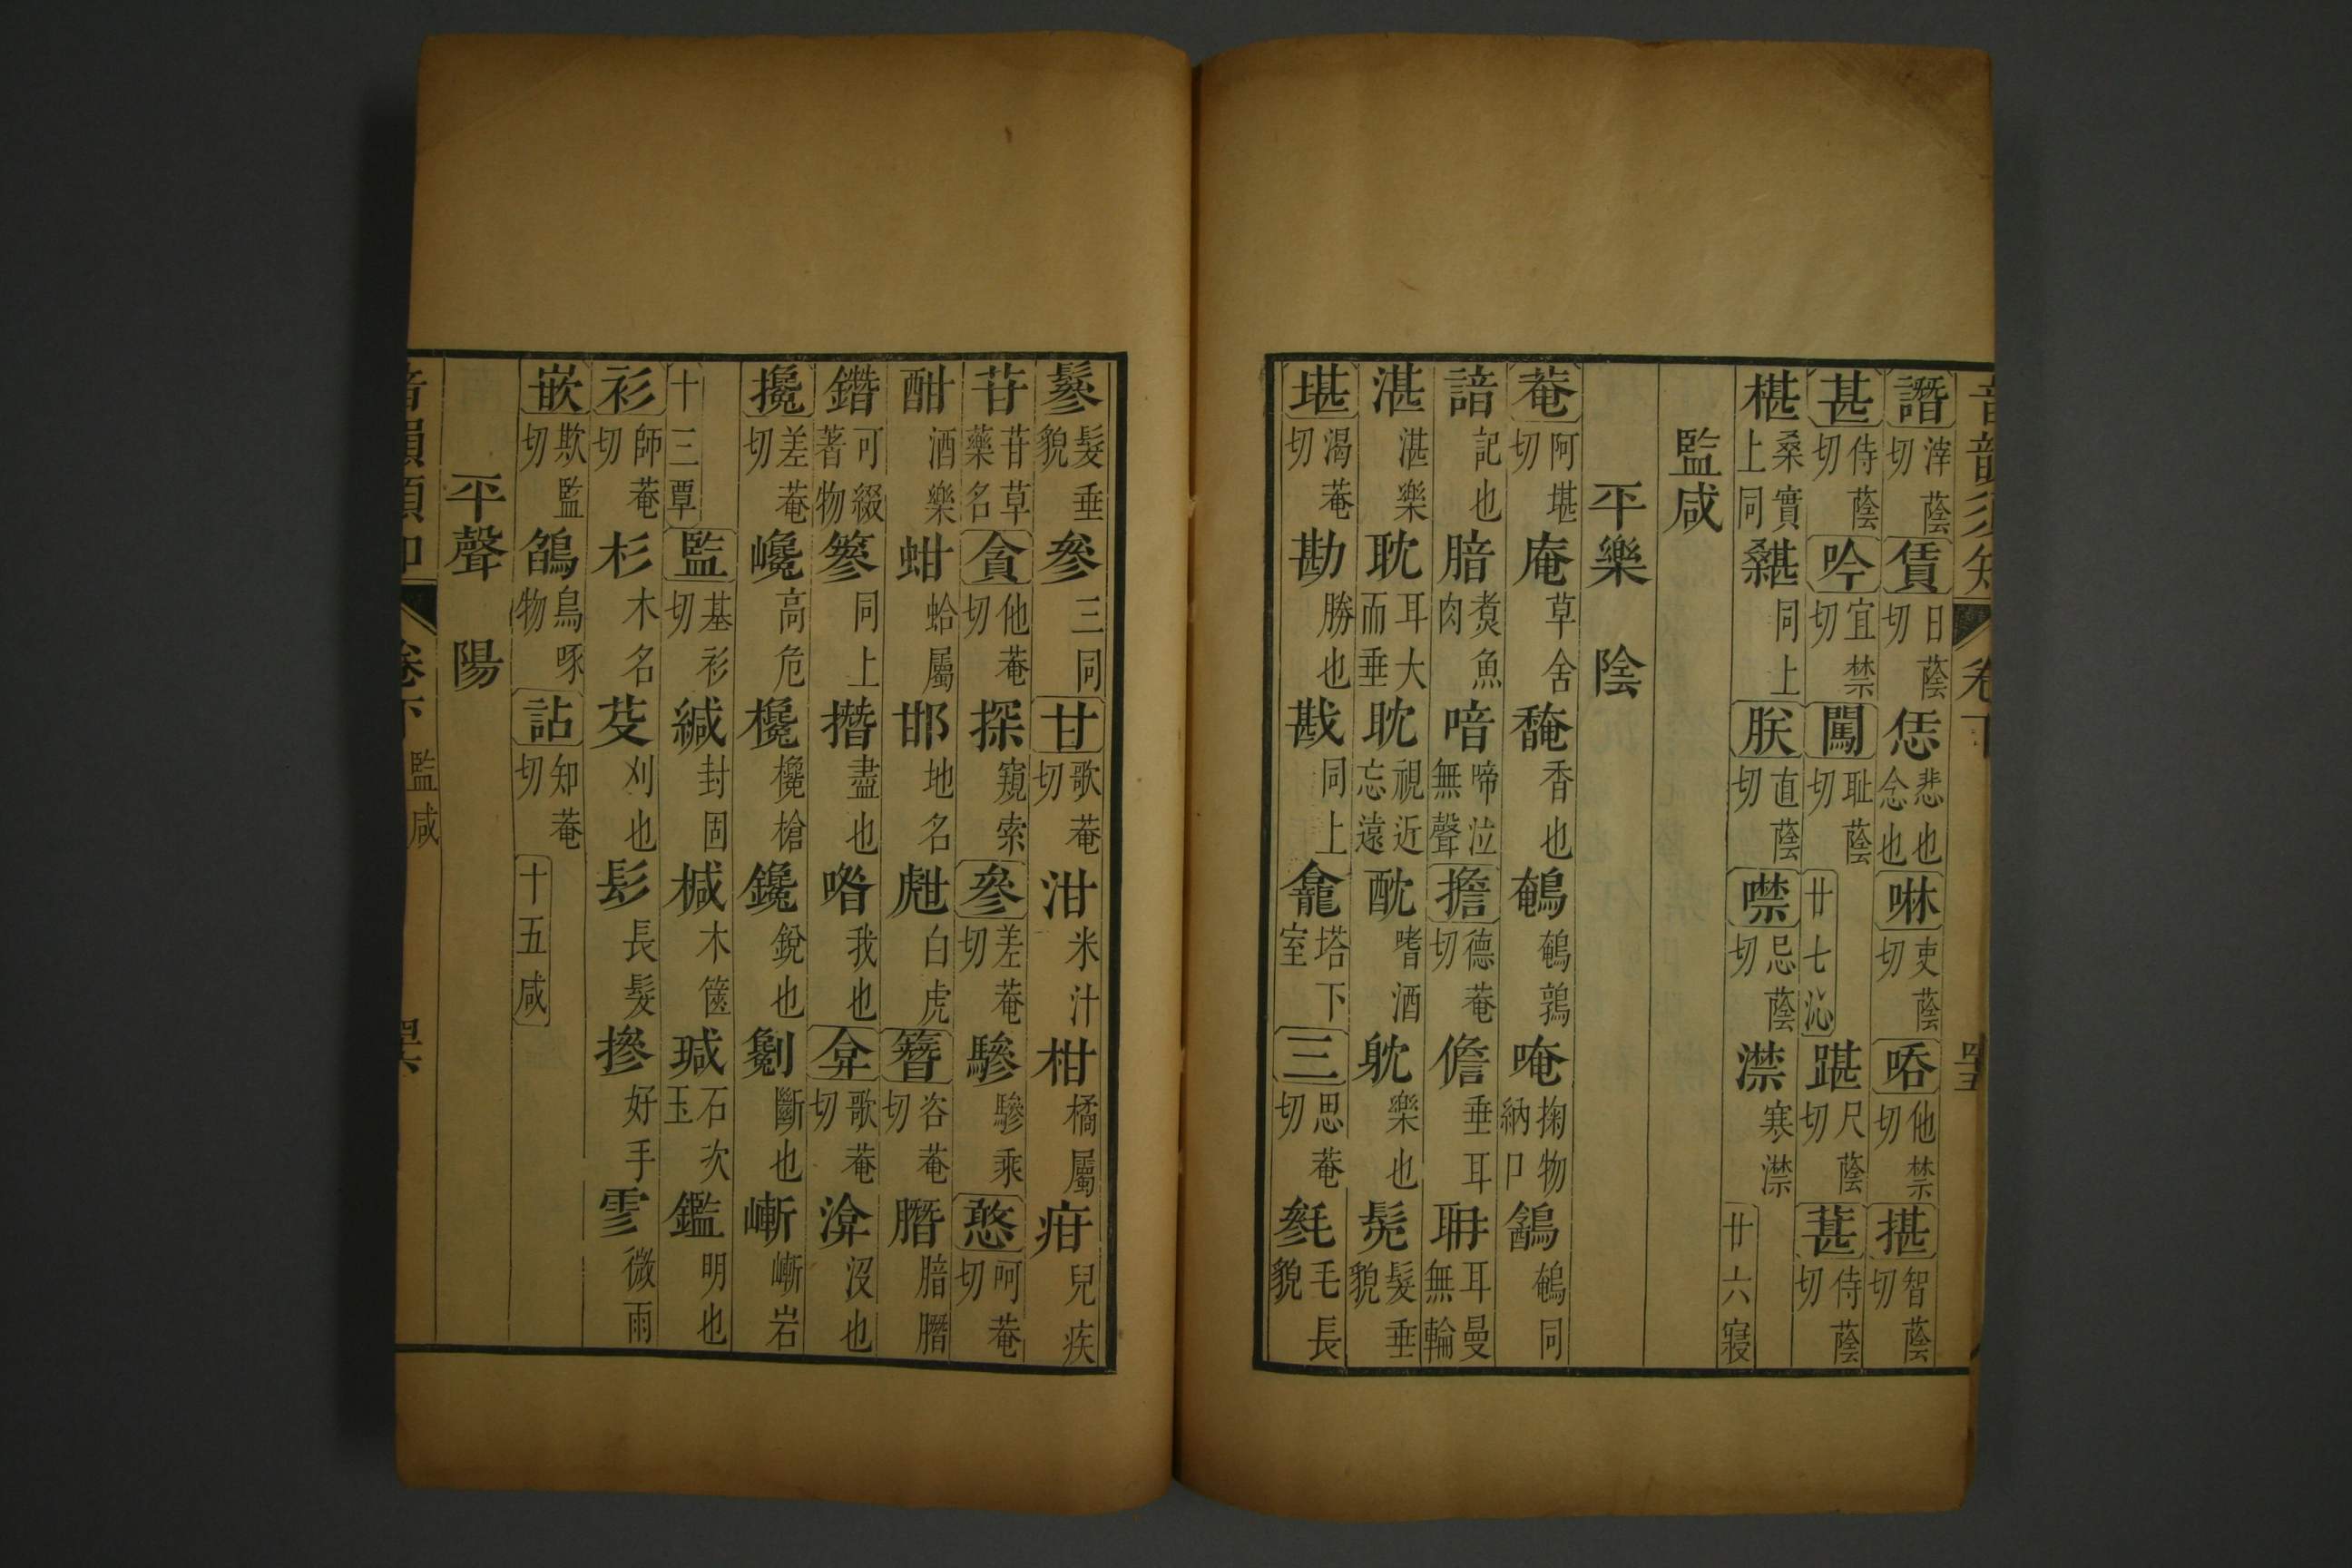 音韻須知 卷下 四五
譖滓蔭切賃日蔭切恁悲也念也啉吏蔭切㖔他禁切揕智蔭切
甚侍蔭切吟宜禁切闖耻蔭切廿七沁踸尺蔭切葚侍蔭切
椹桑實上同糂同上朕直蔭切噤忌蔭切澿寒澿廿六寢
監咸
平樂 陰
菴阿堪切庵草舍馣香也鵪鵪鶉唵掬物納口鶕鵪同
諳記也腤煑魚肉喑啼泣無聲擔德菴切儋垂耳聃耳曼無輪
湛湛樂耽耳大而垂眈視近忘遠酖嗜酒躭樂也髧髮垂貌
堪渴菴切勘勝也戡同上龕塔下室三思菴切毿毛長貌
鬖髮垂貌參三同甘歌菴切泔米汁柑橘屬疳兒疾
苷苷草藥名貪他菴切探窺索參差菴切驂驂乘憨呵菴切
酣酒樂蚶蛤屬邯地名甝白虎簪咨菴切䐶腤䐶
鐕可綴著物篸同上撍盡也喒我也弇歌菴切渰沒也
攙差菴切巉高危欃欃槍鑱銳也劖斷也嶄嶄岩
十三覃監基衫切緘封固椷木篋瑊石次玉鑑明也
衫師菴切杉木名芟刈也髟長髮摻好手䨙微雨
嵌欺監切鵮鳥啄物詀知菴切十五咸
平聲 陽
音韻須知 卷下 監咸 四六